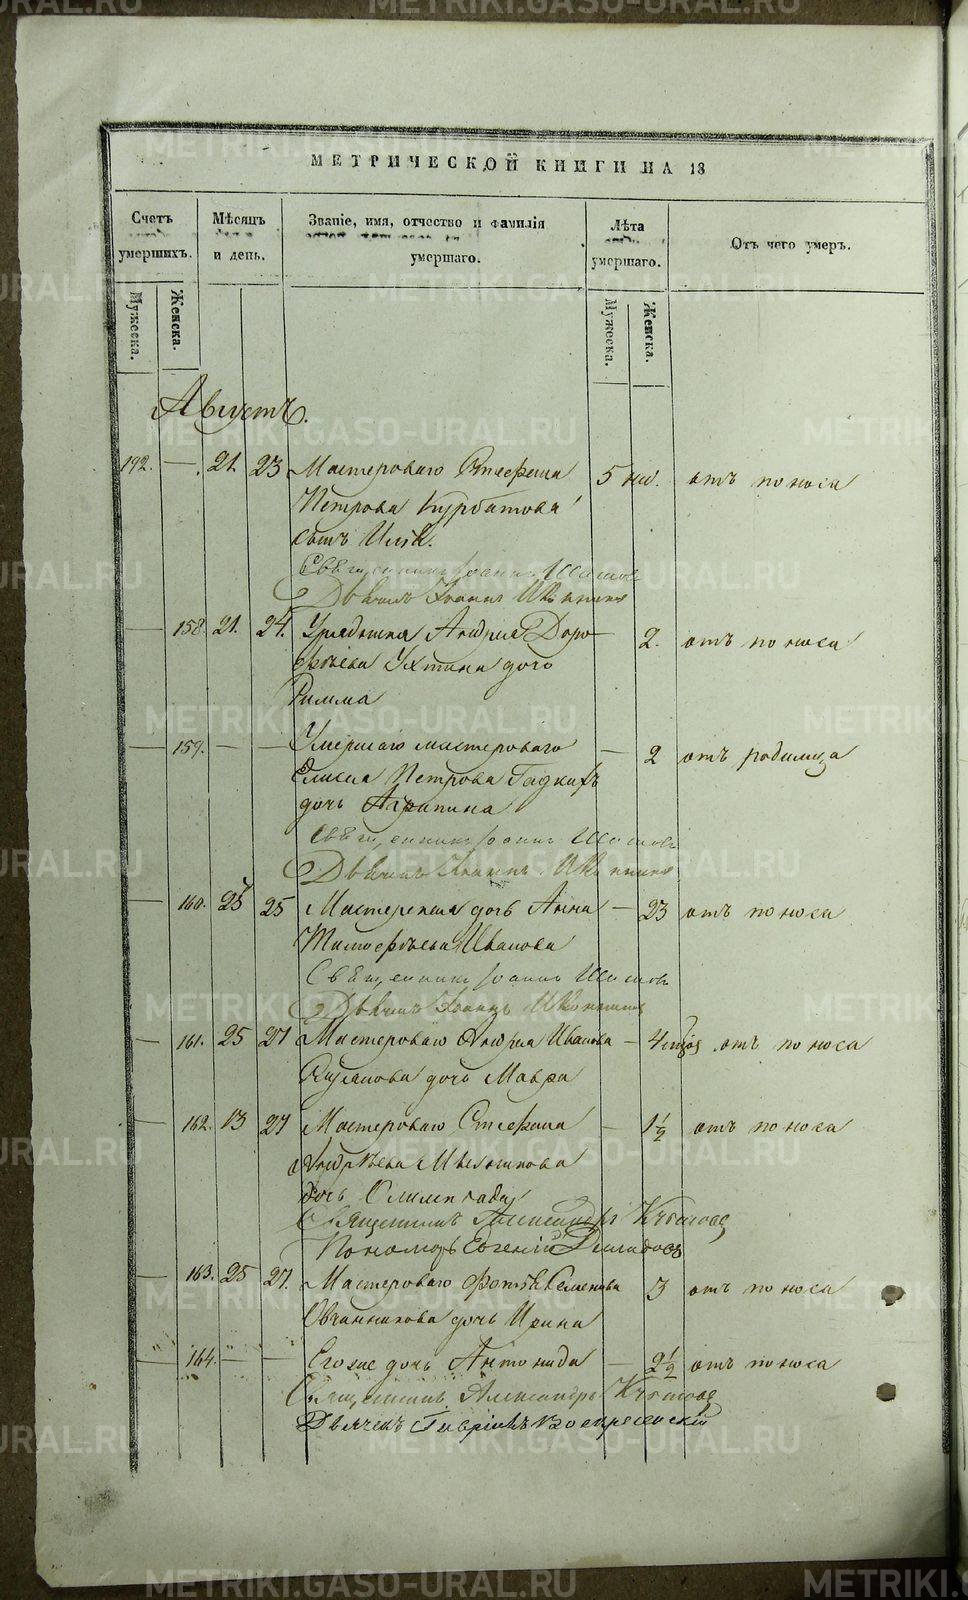 МЕТРИЧЕСКОЙ КНИГИ НА 18
Счетъ умершихъ. Мѣсяцъ и день. Званіе, имя, отчество и фамилія умершаго. Лѣта умершаго. Отъ чего умеръ.
Мужеска. Женска. Мужеска. Женска.
Августъ.
192. — 21. 23 Мастероваго Стефана 5 нед. отъ поноса
Петрова Курбатова
сынъ Илія.
Священникъ Іоаннъ Шишов
Дьячекъ Іоаннъ
— 158 21. 24. Урядника Андрея Доро- 2. отъ поноса
феева Ухтина дочь
Римма
— 159. — — Умершаго мастероваго — 2 отъ родимца
Елисея Петрова Гадкихъ
дочь Агрипина
Священникъ Іоаннъ Шишов
Дьячекъ Іоаннъ
— 160. 25 Мастерская дочь Анна — 23 отъ поноса
Тимофѣева Иванова
Священникъ Іоаннъ Шишов
Дьячекъ Іоаннъ
— 161. 25 27 Мастероваго Андрея Иванова — 4 отъ поноса
дочь Мавра
— 162. 13 27 Мастероваго Стефана — 1½ отъ поноса
Андрѣева
дочь Олимпіада
Священникъ Александръ
Пономарь Евгеній
— 163. 25 27. Мастероваго Фотія Семенова 3 отъ поноса
Овчинникова дочь Ирина
— 164. — — Егоже дочь Антонида — 2½ отъ поноса
Священникъ Александръ
Дьячекъ Гавріилъ Воскресенскій
METRIKI.GASO-URAL.RU